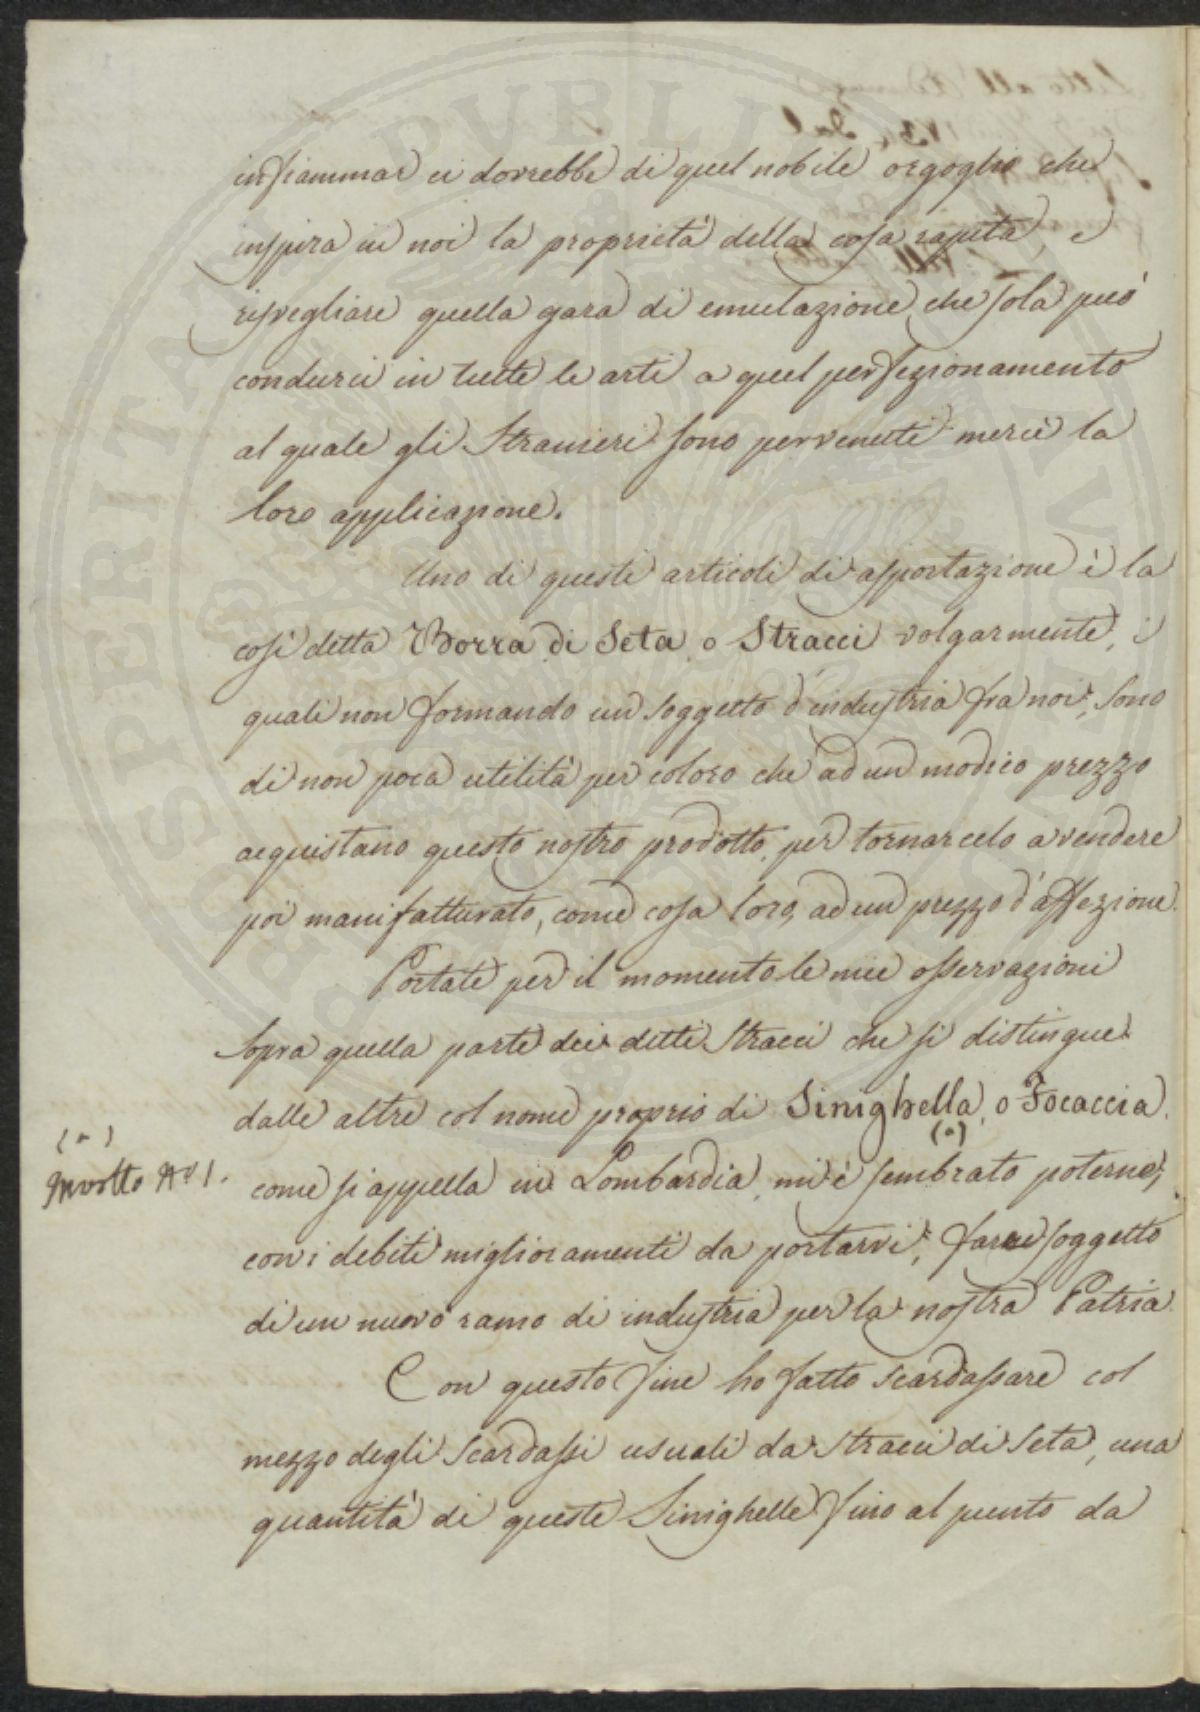 infiammar ci dovrebbe di quel nobile orgoglio che
inspira in noi la proprietà della cosa rapita, e
risvegliare quella gara di emulazione che sola può
condurci in tutte le arti a quel perfezionamento
al quale gli Stranieri sono pervenuti mercè la
loro applicazione.
Uno di questi articoli di asportazione è la
così detta Borra di Seta o Stracci volgarmente, i
quali non formando un soggetto d'industria fra noi, sono
di non poca utilità per coloro che ad un modico prezzo
acquistano questo nostro prodotto, per tornarcelo a vendere
poi manifatturato, come cosa loro, ad un prezzo d'affezione.
Portate per il momento le mie osservazioni
sopra quella parte dei detti Stracci che si distingue
dalle altre col nome proprio di Sinighella, o Focaccia
(a)
come si appella in Lombardia, mi è sembrato poterne,
con i debiti miglioramenti da portarvi, farne soggetto
di un nuovo ramo di industria per la nostra Patria.
Con questo fine ho fatto scardassare col
mezzo degli Scardassi usuali da Stracci di Seta, una
quantità di queste Sinighelle fino al punto da
(a)
Involto N° 1.
PUBLICA
PROSPERITATI